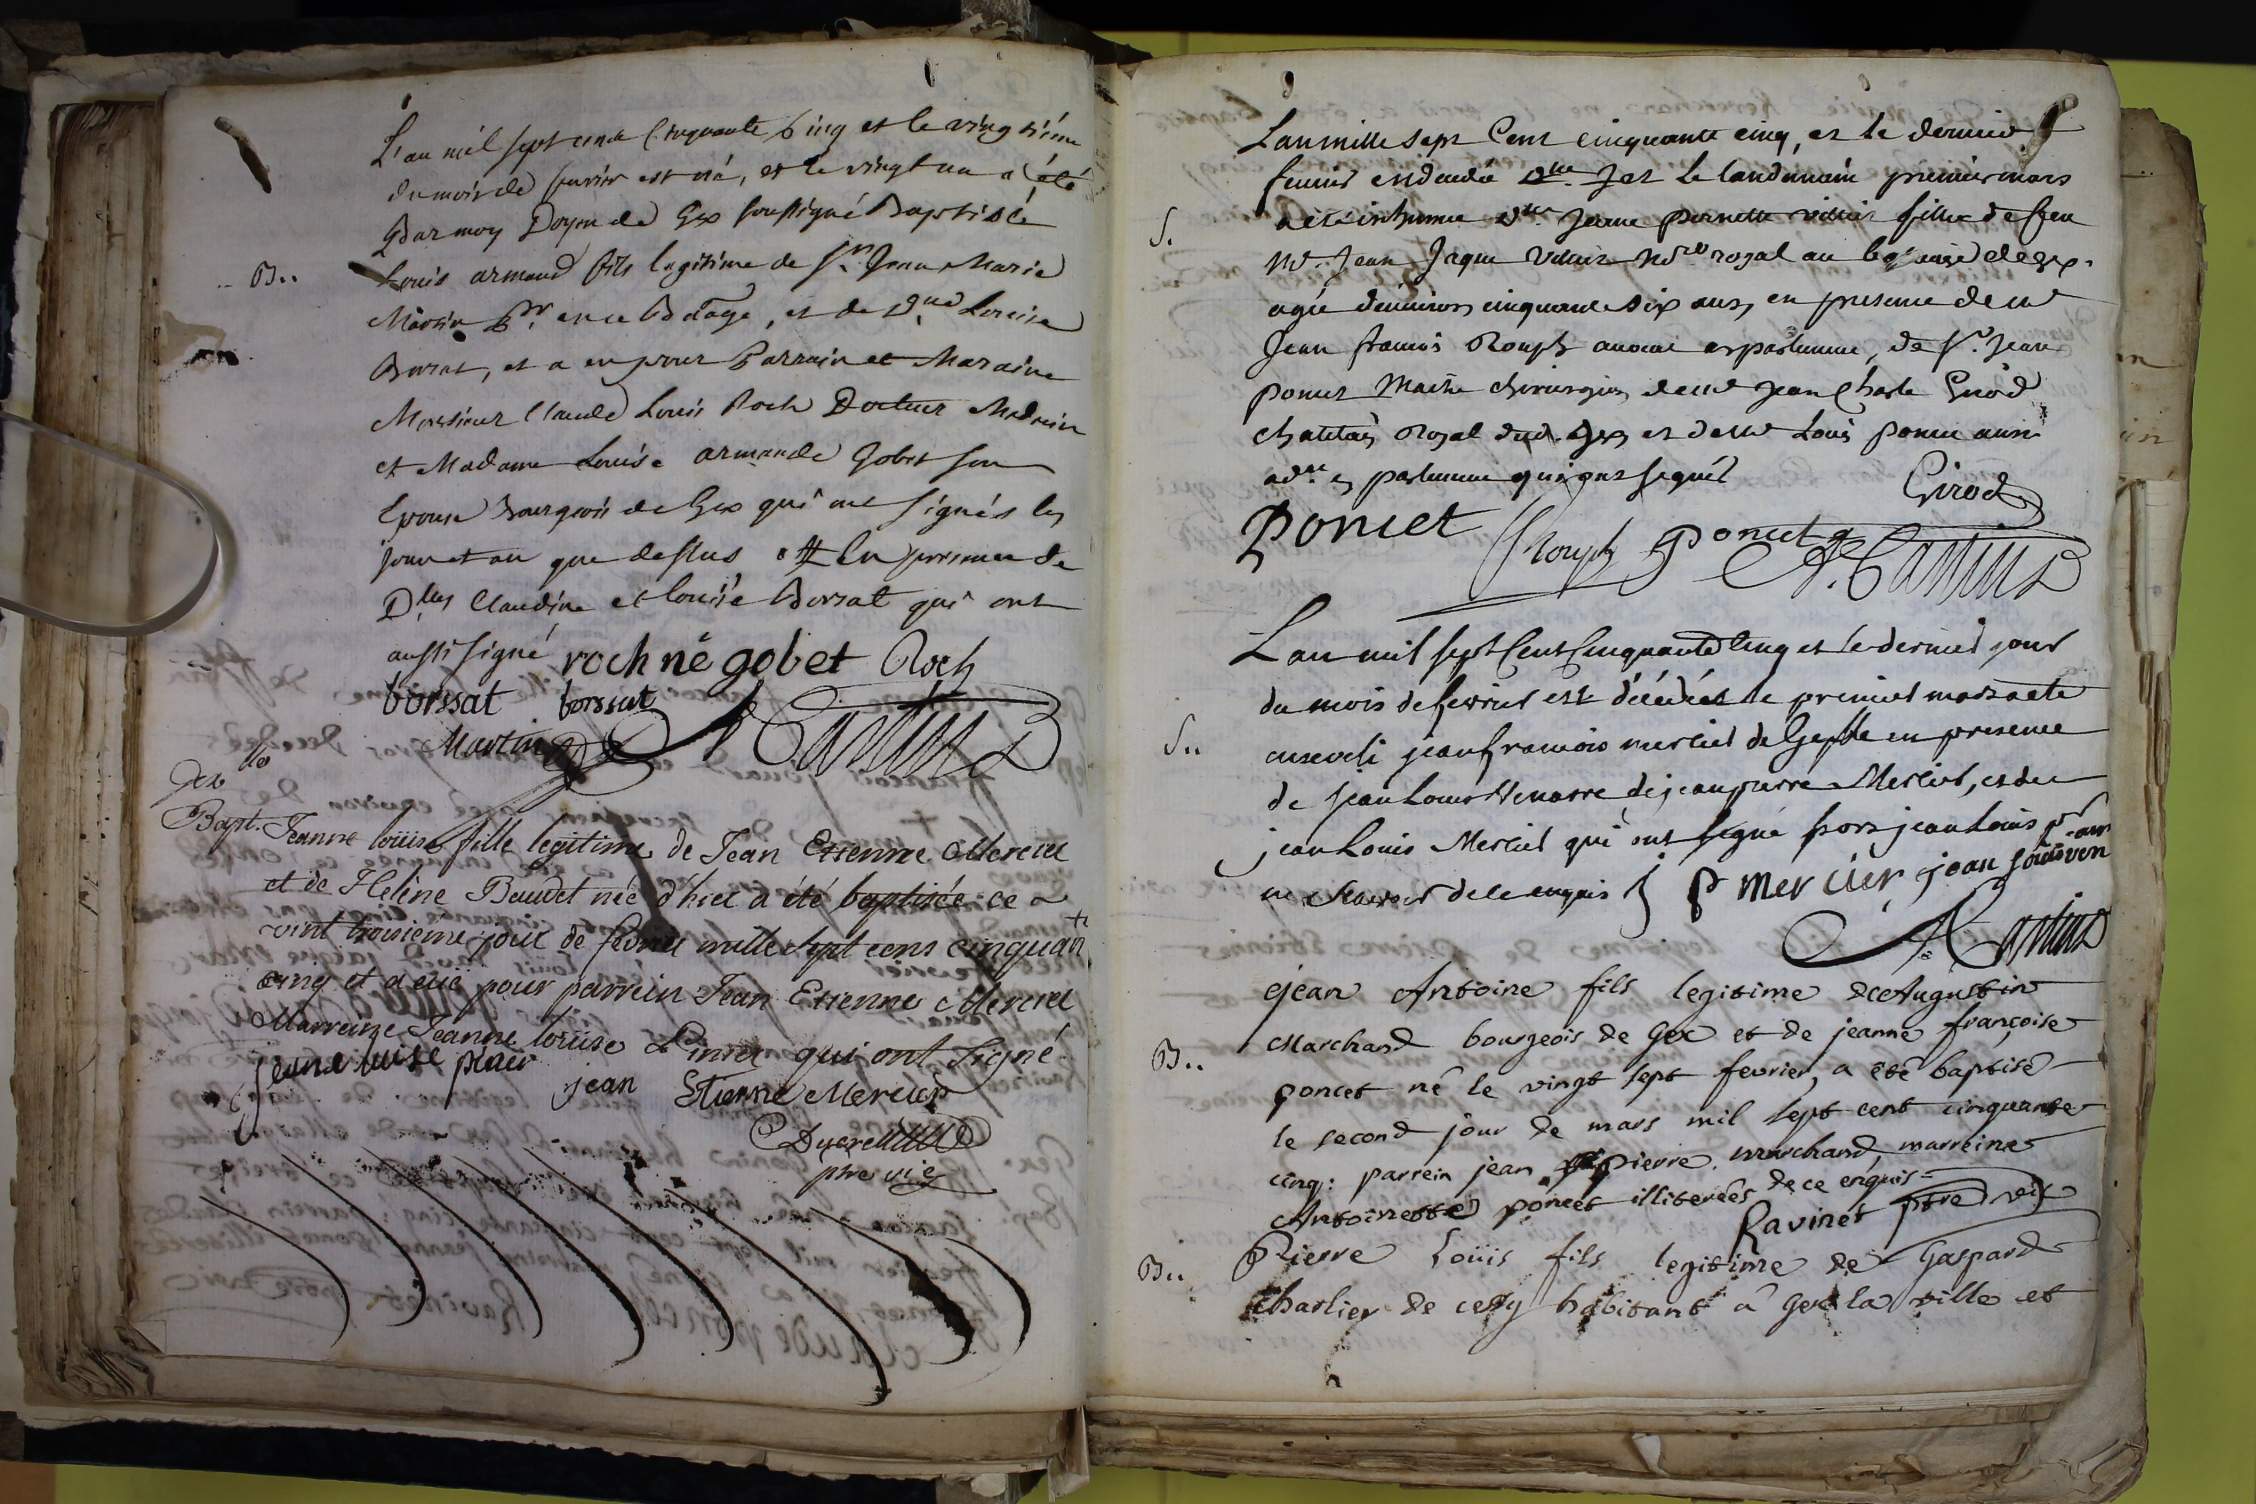 L'an mil sept cent Cinquante Cinq et le vingtième
du mois de fevrier est né, et le vingt un a été
Par moy Doyen de Gex soussigné Baptisé
B..
Louis armand fils legitime de Sr. Jean Marie
Martin en ce Bailage, et de Dlle Louise
Borsat, et a eu pour Parrain et Maraine
Monsieur Claude Louis Roch Docteur Medecin
et Madame Louise armande Gobet son
Epouse Bourgeois de Gex qui ont signés les
jour et an que dessus En presence de
Dlles Claudine et Louise Borsat qui ont
aussi signé
roch né gobet Roch
borssat borssat
Martin Castin
Gex
Bapt.
Jeanne loüise fille legitime de Jean Etienne Mercier
et de Heline Baudet née d'hier a été baptisée ce
vint troisieme jour de fevrier mille sept cens cinquante
cinq et a eüe pour parrein Jean Etienne Mercier
Marreine Jeanne loüise Piner qui ont signé
jeane luise piner
jean Etienne Mercier
Ducret
ptre vic
L'an mille sept Cent cinquante cinq, et le dernier
fevrier est decedée et le landemain premier mars
S.
a été inhumée Dlle Jeanne Pernette fille de feu
Me. Jean Jaque royal au de gex
agée d'environ cinquante six ans, en presence de Me
Jean francois Rouph avocat en parlement, de Sr. Jean
poncet Maitre chirurgien de Me Jean Charle Girod
Chatelain Royal dud. Gex et de Me Louis poncet aussi
adt. en parlement qui ont signés
Girod
Poncet Rouph Poncet Castin
L'an mil sept Cent Cinquante Cinq et le dernier jour
du mois de fevrier est décédé et le premier mars a ete
S..
enseveli jean francois mercier de Gex en presence
de jean Louis de jean pierre Mercier, et de
jean Louis Mercier qui ont signé hors jean Louis
ne scavoir de ce enquis
P mercier jean
Castin
Jean Antoine fils legitime de Augustin
Marchand bourgeois de Gex et de jeanne françoise
B..
poncet né le vingt sept fevrier, a été baptisé
le second jour de mars mil sept cent cinquante
cinq: parrein jean pierre marchand, marreine
Antoinette poncet illiterées de ce enquis
Ravinet ptre vic
B..
Pierre Loüis fils legitime de Gaspard
Charlier de habitant à Gex la ville et